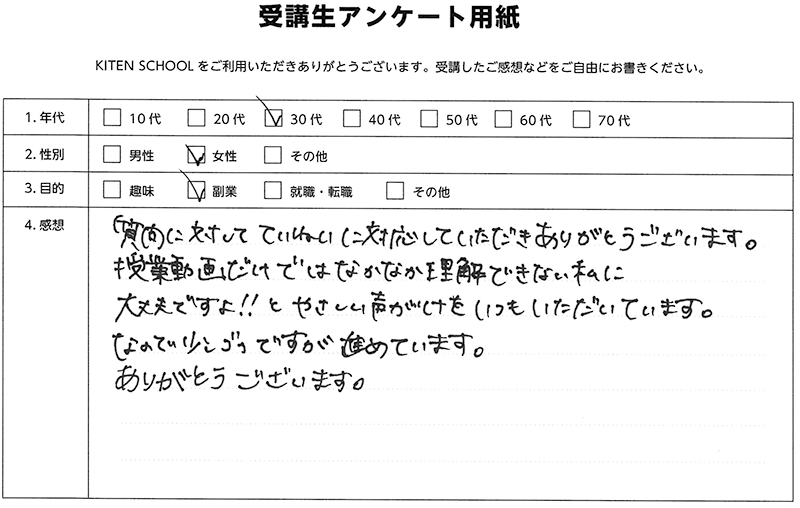 受講生アンケート用紙
KITEN SCHOOLをご利用いただきありがとうございます。受講したご感想などをご自由にお書きください。
1. 年代 10代 20代 30代 40代 50代 60代 70代
2. 性別 男性 女性 その他
3. 目的 趣味 副業 就職・転職 その他
4. 感想
質問に対して ていねいに対応していただきありがとうございます。
授業動画だけではなかなか理解できない私に
大丈夫ですよ!!と やさしい声がけをいつもいただいています。
なので少しづつですが 進めています。
ありがとうございます。